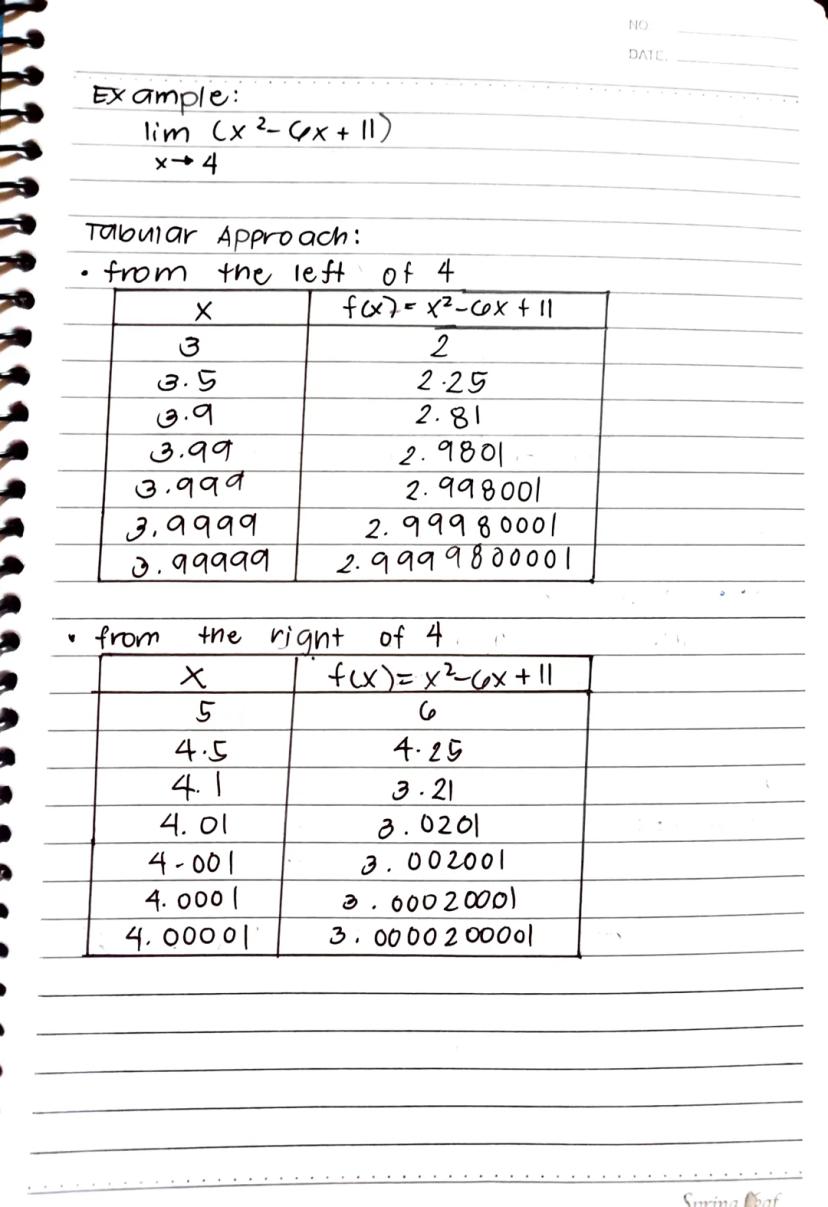 NO
DATE.
Example:
lim (x²-6x+11)
x→4
Tabular Approach:
• from the left of 4
x f(x)=x²-6x+11
3 2
3.5 2.25
3.9 2.81
3.99 2.9801
3.999 2.998001
3.9999 2.99980001
3.99999 2.9999800001
• from the right of 4
x f(x)=x²-6x+11
5 6
4.5 4.25
4.1 3.21
4.01 3.0201
4-001 3.002001
4.0001 3.00020001
4.00001 3.0000200001
Spring Leaf